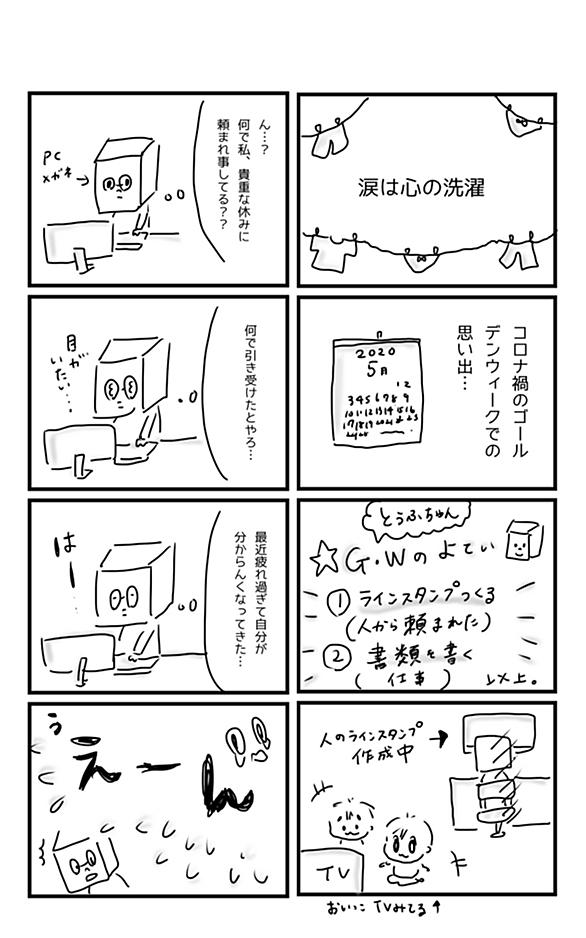 涙は心の洗濯
コロナ禍のゴール
デンウィークでの
思い出…
2020
5月
1 2
3 4 5 6 7 8 9
10 11 12 13 14 15 16
とうふちゃん
☆G・Wのよてい
① ラインスタンプつくる
(人から頼まれた)
② 書類を書く
(仕事)
以上。
人のラインスタンプ→
作成中
TV
おいっこ TVみてる↑
ん…?
何で私、貴重な休みに
頼まれ事してる??
PC
メガネ→
何で引き受けたとやろ…
目が
いたい…
最近疲れ過ぎて自分が
分からんくなってきた…
はー
うえーん